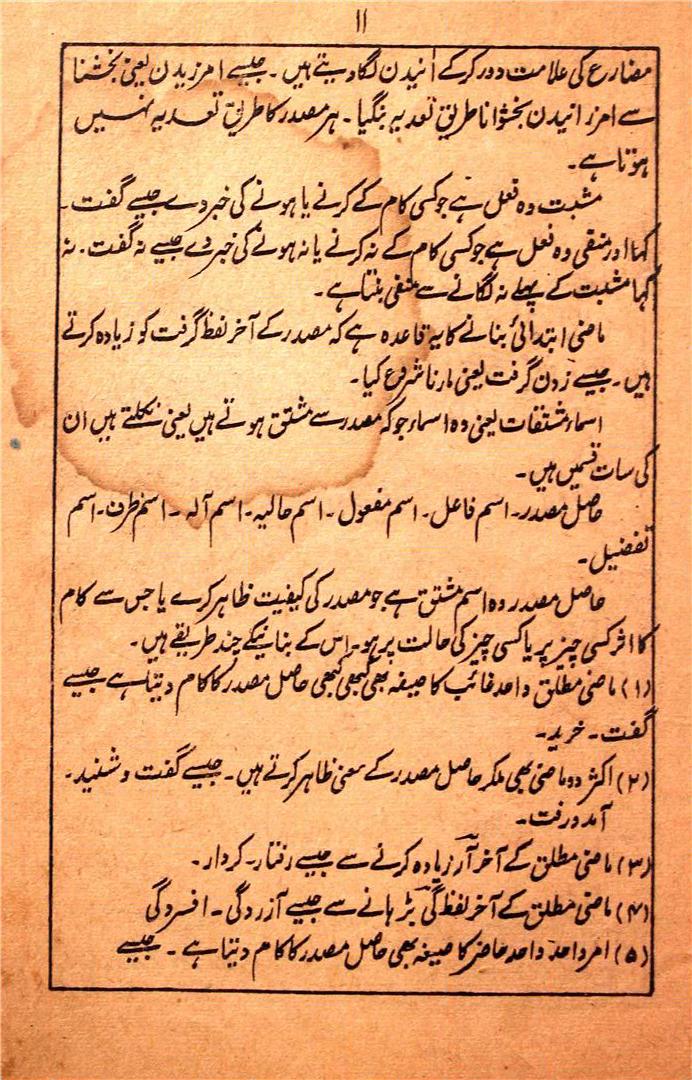 ۱۱
مضارع کی علامت دور کرکے انیدن لگا دیتے ہیں۔ جیسے امرزیدن یعنی بخشنا
سے امرزانیدن بخشوانا طریق تعدیہ بنگیا۔ ہر مصدر کا طریق تعدیہ نہیں
ہوتا ہے۔
مثبت وہ فعل ہے جو کسی کام کے کرنے یا ہونے کی خبر دے جیسے گفت۔
کہا اور منفی وہ فعل ہے جو کسی کام کے نہ کرنے یا نہ ہونے کی خبر دے جیسے نہ گفت۔ نہ
کہا مثبت کے پہلے نہ لگانے سے منفی بنتا ہے۔
ماضی ابتدائی بنانے کا یہ قاعدہ ہے کہ مصدر کے آخر لفظ گرفت کو زیادہ کرتے
ہیں۔ جیسے زدن گرفت یعنی مارنا شروع کیا۔
اسماء مشتقات یعنی وہ اسماء جو کہ مصدر سے مشتق ہوتے ہیں یعنی نکلتے ہیں ان
کی سات قسمیں ہیں۔
حاصل مصدر۔ اسم فاعل۔ اسم مفعول۔ اسم حالیہ۔ اسم آلہ۔ اسم ظرف۔ اسم
تفضیل۔
حاصل مصدر وہ اسم مشتق ہے جو مصدر کی کیفیت ظاہر کرے یا جس سے کام
کا اثر کسی چیز پر یا کسی چیز کی حالت پر ہو۔ اس کے بنانیکے چند طریقے ہیں۔
(۱) ماضی مطلق واحد غائب کا صیغہ بھی کبھی کبھی حاصل مصدر کا کام دیتا ہے جیسے
گفت۔ خرید۔
(۲) اکثر دو ماضی بھی ملکر حاصل مصدر کے معنی ظاہر کرتے ہیں۔ جیسے گفت و شنید۔
آمد و رفت۔
(۳) ماضی مطلق کے آخر آر زیادہ کرنے سے جیسے رفتار۔ کردار۔
(۴) ماضی مطلق کے آخر لفظ گی بڑہانے سے جیسے آزردگی۔ افسردگی
(۵) امر واحد واحد حاضر کا صیغہ بھی حاصل مصدر کا کام دیتا ہے۔ جیسے